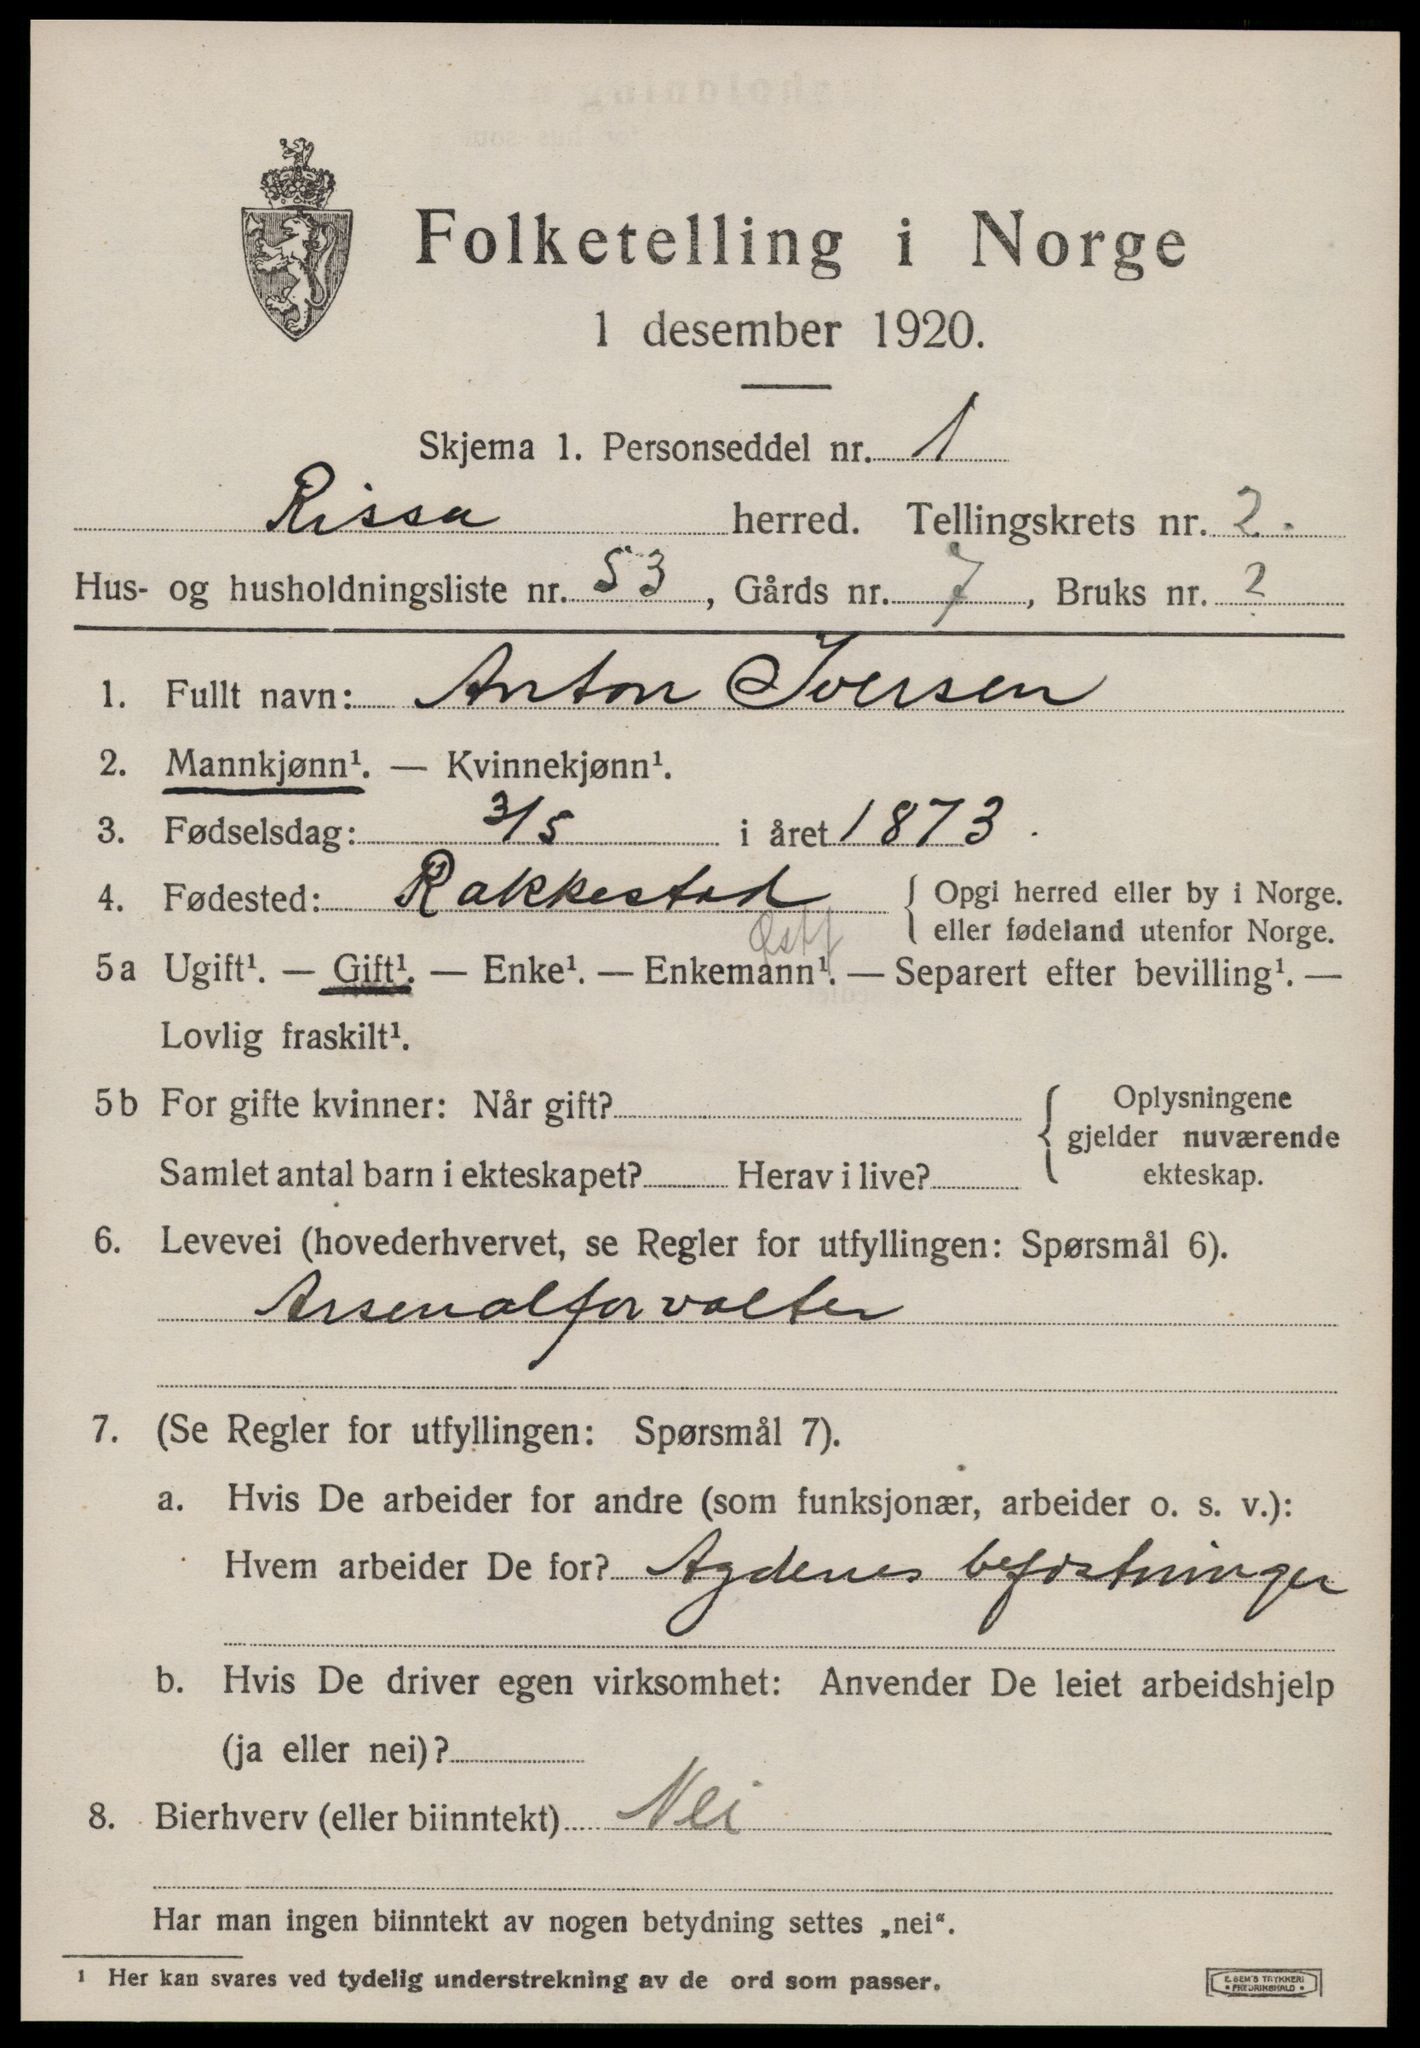 Folketelling i Norge
1 desember 1920.
Skjema 1. Personseddel nr. 1
Rissa herred. Tellingskrets nr. 2.
Hus- og husholdningsliste nr. 53, Gårds nr. 7, Bruks nr. 2
1. Fullt navn: Anton Iversen
2. Mannkjønn¹. — Kvinnekjønn¹.
3. Fødselsdag: 3/5 i året 1873.
4. Fødested: Rakkestad { Opgi herred eller by i Norge.
eller fødeland utenfor Norge.
Østf
5a Ugift¹. — Gift¹. — Enke¹. — Enkemann¹. — Separert efter bevilling¹. —
Lovlig fraskilt¹.
5b For gifte kvinner: Når gift? { Oplysningene
gjelder nuværende
Samlet antal barn i ekteskapet? Herav i live? ekteskap.
6. Levevei (hovederhvervet, se Regler for utfyllingen: Spørsmål 6).
Arsenalforvalter
7. (Se Regler for utfyllingen: Spørsmål 7).
a. Hvis De arbeider for andre (som funksjonær, arbeider o. s. v.):
Hvem arbeider De for? Agdenes befæstninger
b. Hvis De driver egen virksomhet: Anvender De leiet arbeidshjelp
(ja eller nei)?
8. Bierhverv (eller biinntekt) Nei
Har man ingen biinntekt av nogen betydning settes „nei“.
¹ Her kan svares ved tydelig understrekning av de ord som passer.
E. SEM'S TRYKKERI
• FREDRIKSHALD •